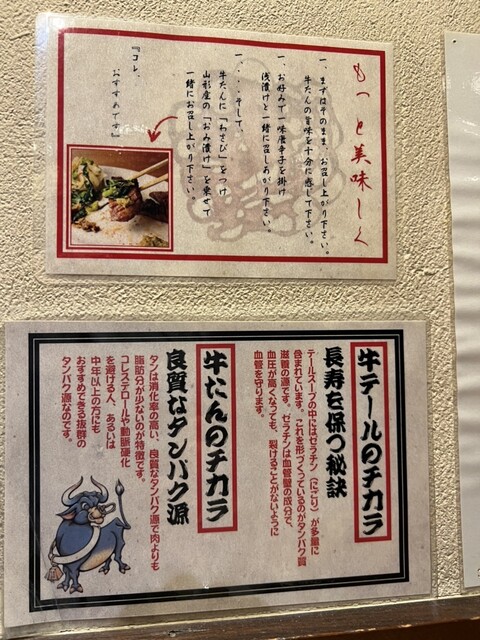 もっと美味しく
一、まずはそのまま、お召し上がり下さい。
牛たんの旨味を十分に感じて下さい。
一、お好みで一味唐辛子を掛け
浅漬けと一緒に召しあがり下さい。
一、・・・そして、
牛たんに「わさび」をつけ
山形産の「おみ漬け」を乗せて
一緒にお召し上がり下さい。
『コレ、
おすすめです』
牛テールのチカラ
長寿を保つ秘訣
テールスープの中にはゼラチン（にごり）が多量に
含まれています。これを形づくっているのがタンパク質
滋養の源です。ゼラチンは血管壁の成分で、
血圧が高くなっても、裂けることがないように
血管を守ります。
牛たんのチカラ
良質なタンパク源
タンは消化率の高い、良質なタンパク源で肉よりも
脂肪分が少ないのが特徴です。
コレステロールや動脈硬化
を避ける人、あるいは
中年以上の方にも
おすすめできる抜群の
タンパク源なのです。